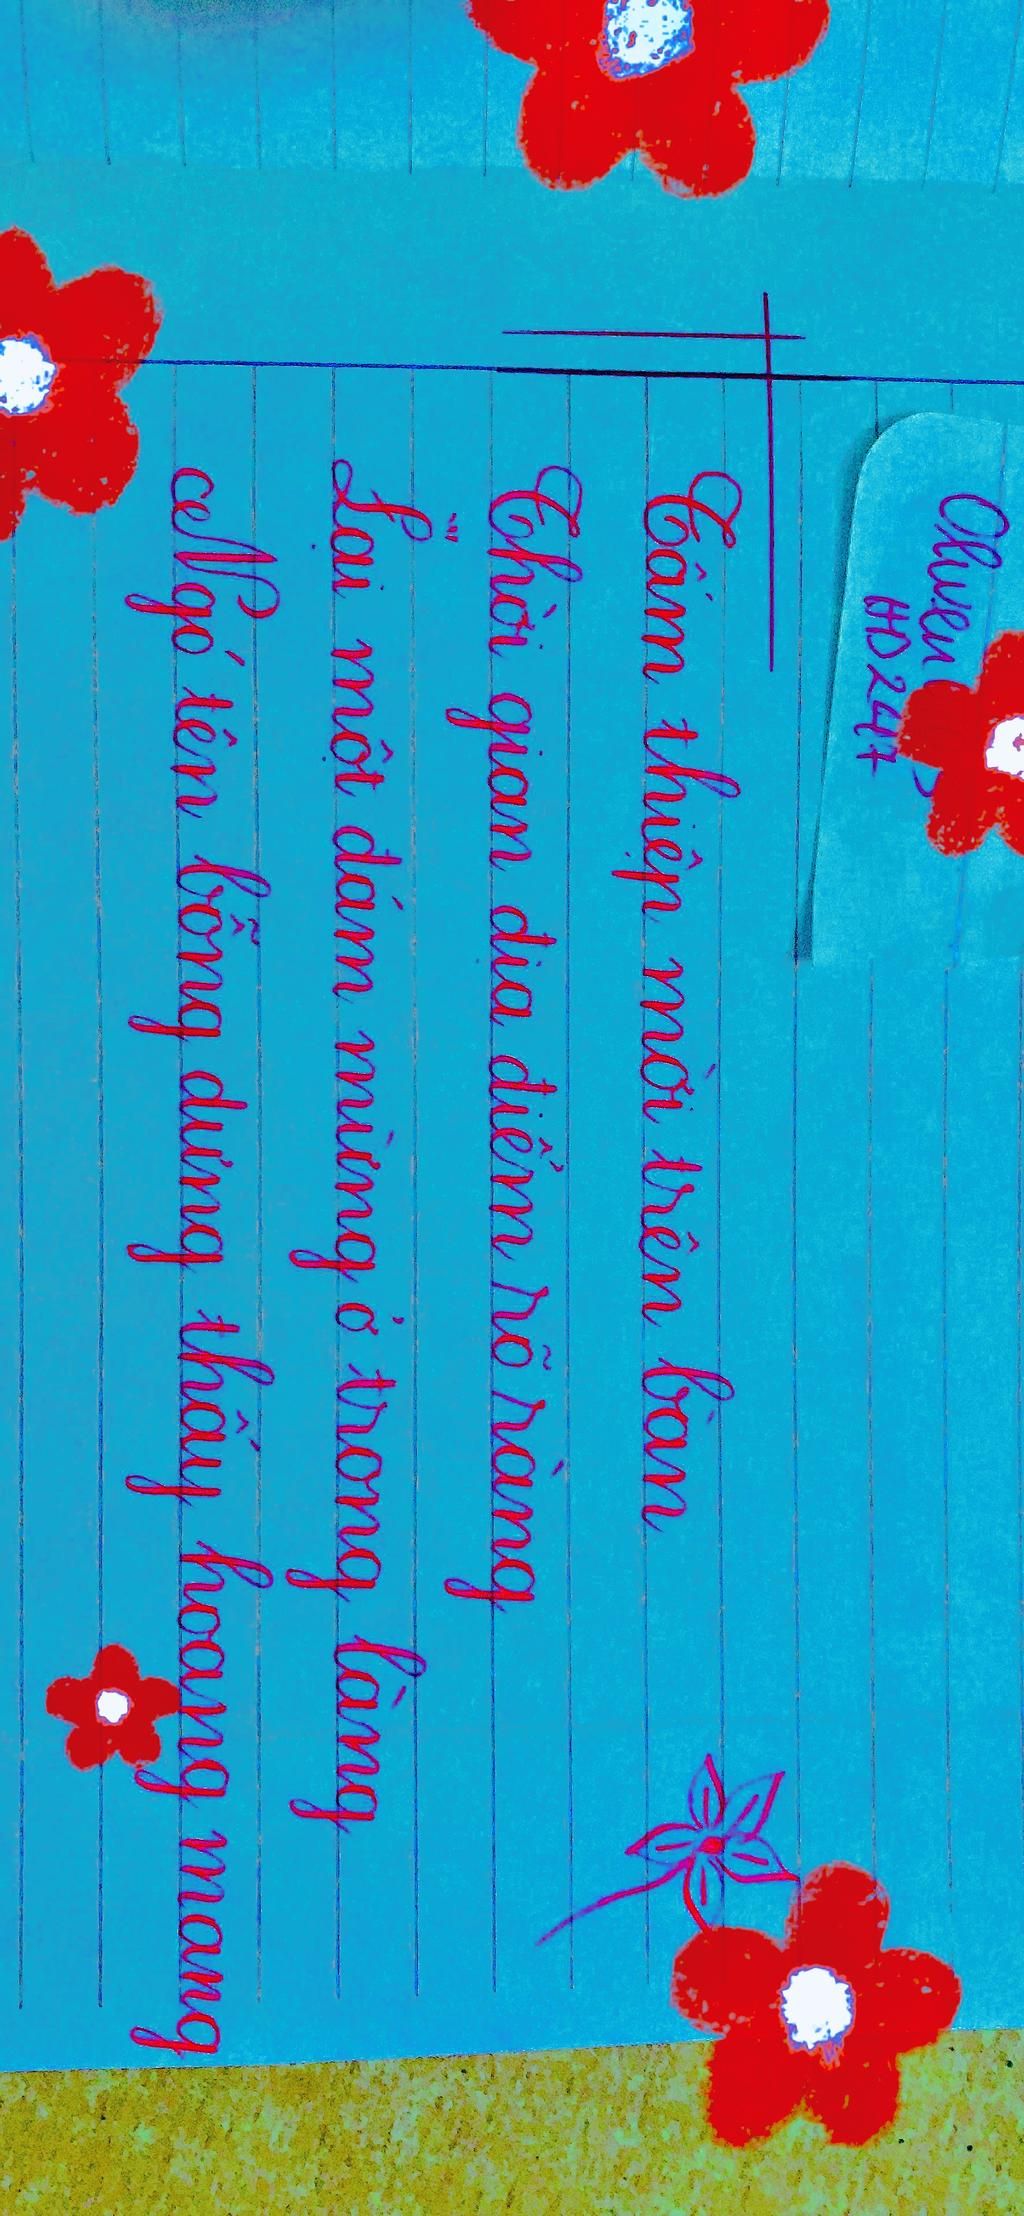 HD 247
Tấm thiệp mời trên bàn
Thời gian địa điểm rõ ràng
Lại một đám mừng ở trong làng
Ngó tên bỗng dưng thấy hoang mang